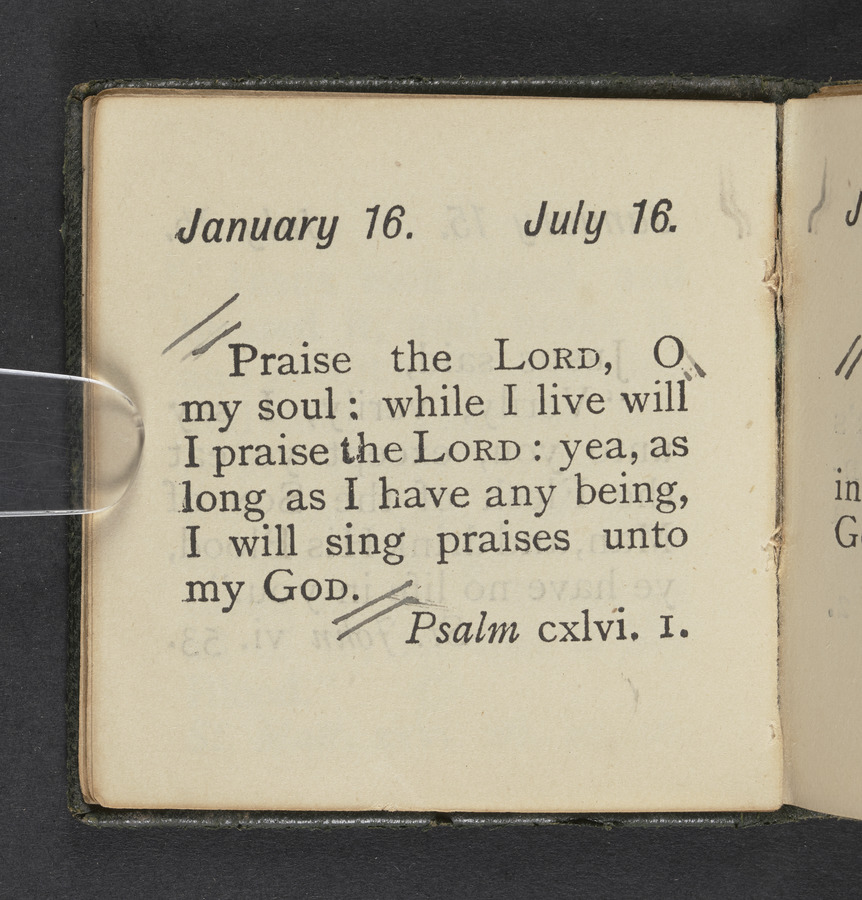 January 16. July 16.
Praise the LORD, O
my soul : while I live will
I praise the LORD : yea, as
long as I have any being,
I will sing praises unto
my GOD.
Psalm cxlvi. 1.
in